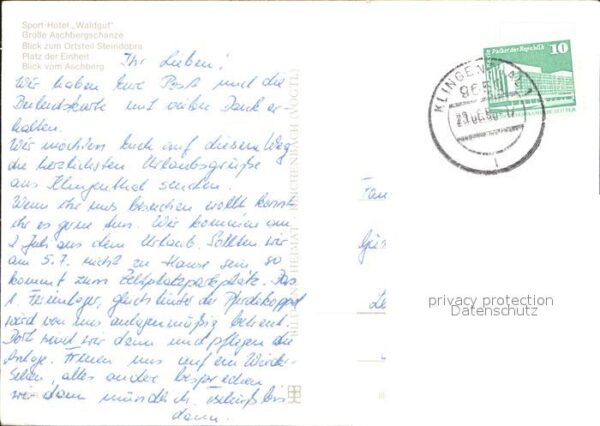 Sport-Hotel „Waldgut"
Große Aschbergschanze
Blick zum Ortsteil Steindöbra
Platz der Einheit
Blick vom Aschberg
Ihr Lieben!
Wir haben Eure Post und die
mit vielen Dank er-
halten.
Wir möchten Euch auf diesem Weg
die herzlichsten Urlaubsgrüße
aus Klingenthal senden.
Wenn ihr uns besuchen wollt könnt
ihr es gerne tun. Wir kommen am
2. Juli aus dem Urlaub. Sollten wir
am 5.7. nicht zu Hause sein so
kommt zum Das
1. Ferienlager, gleich hinter der Pferdekoppel
wird von uns anlagenmäßig betreut.
Dort sind wir dann und pflegen die
Anlage. Freuen uns auf ein Wieder-
sehen, alles andere besprechen
wir dann mündlich, bis
dann.
BILD UND HEIMAT REICHENBACH (VOGTL)
Palast der Republik
10
KLINGENTHAL 1
9650
Fam
Le
privacy protection
Datenschutz